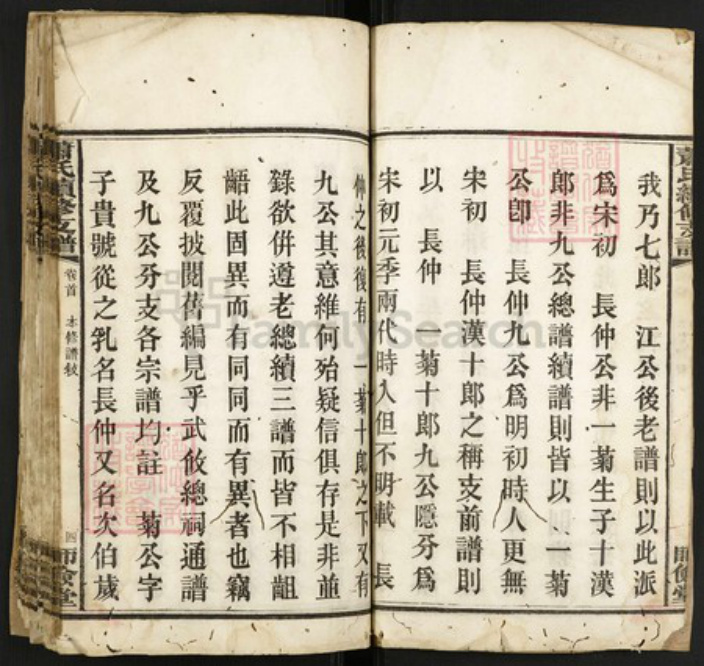 我乃七郎　江公後老譜則以此派
爲宋初　長仲公非一菊生子十漢
郎非九公總譜續譜則皆以　一菊
公卽　長仲九公爲明初時人更無
宋初　長仲漢十郎之稱支前譜則
以　長仲　一菊十郎九公隱分爲
宋初元季兩代時人但不明載　長
仲之後復有　一菊十郎之下又有
九公其意維何殆疑信俱存是非並
錄欲倂遵老總續三譜而皆不相齟
齬此固異而有同同而有異者也竊
反覆披閱舊編見乎武攸總祠通譜
及九公分支各宗譜均註　菊公字
子貴號從之乳名長仲又名次伯歲
蕭氏續修支譜
卷首　本修譜敘
四
師儉堂
蕭氏續修支譜
師儉堂
FamilySearch